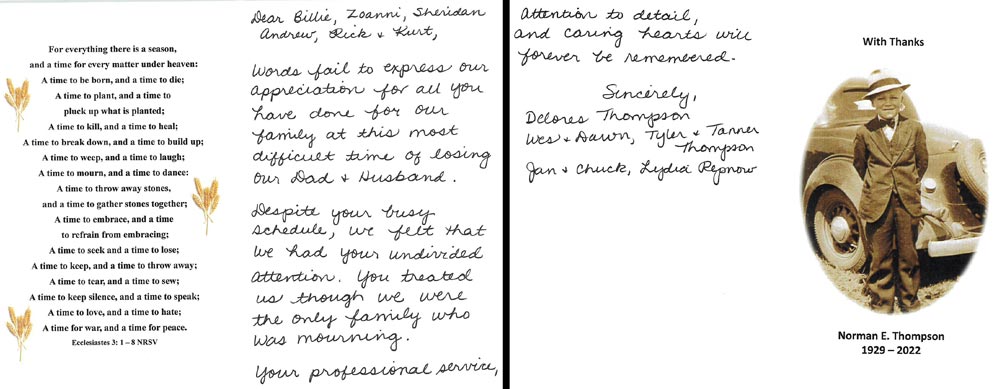 For everything there is a season,
and a time for every matter under heaven:
A time to be born, and a time to die;
A time to plant, and a time to
pluck up what is planted;
A time to kill, and a time to heal;
A time to break down, and a time to build up;
A time to weep, and a time to laugh;
A time to mourn, and a time to dance:
A time to throw away stones,
and a time to gather stones together;
A time to embrace, and a time
to refrain from embracing;
A time to seek and a time to lose;
A time to keep, and a time to throw away;
A time to tear, and a time to sew;
A time to keep silence, and a time to speak;
A time to love, and a time to hate;
A time for war, and a time for peace.
Ecclesiastes 3: 1 – 8 NRSV
Dear Billie, Zoanni, Sheridan
Andrew, Rick & Kurt,
Words fail to express our
appreciation for all you
have done for our
family at this most
difficult time of losing
our Dad & Husband.
Despite your busy
schedule, we felt that
we had your undivided
attention. You treated
us though we were
the only family who
was mourning.
Your professional service,
Attention to detail,
and caring hearts will
forever be remembered.
Sincerely,
Delores Thompson
Wes & Dawn, Tyler & Tanner
Thompson
Jan & Chuck, Lydia Repnow
With Thanks
Norman E. Thompson
1929 – 2022